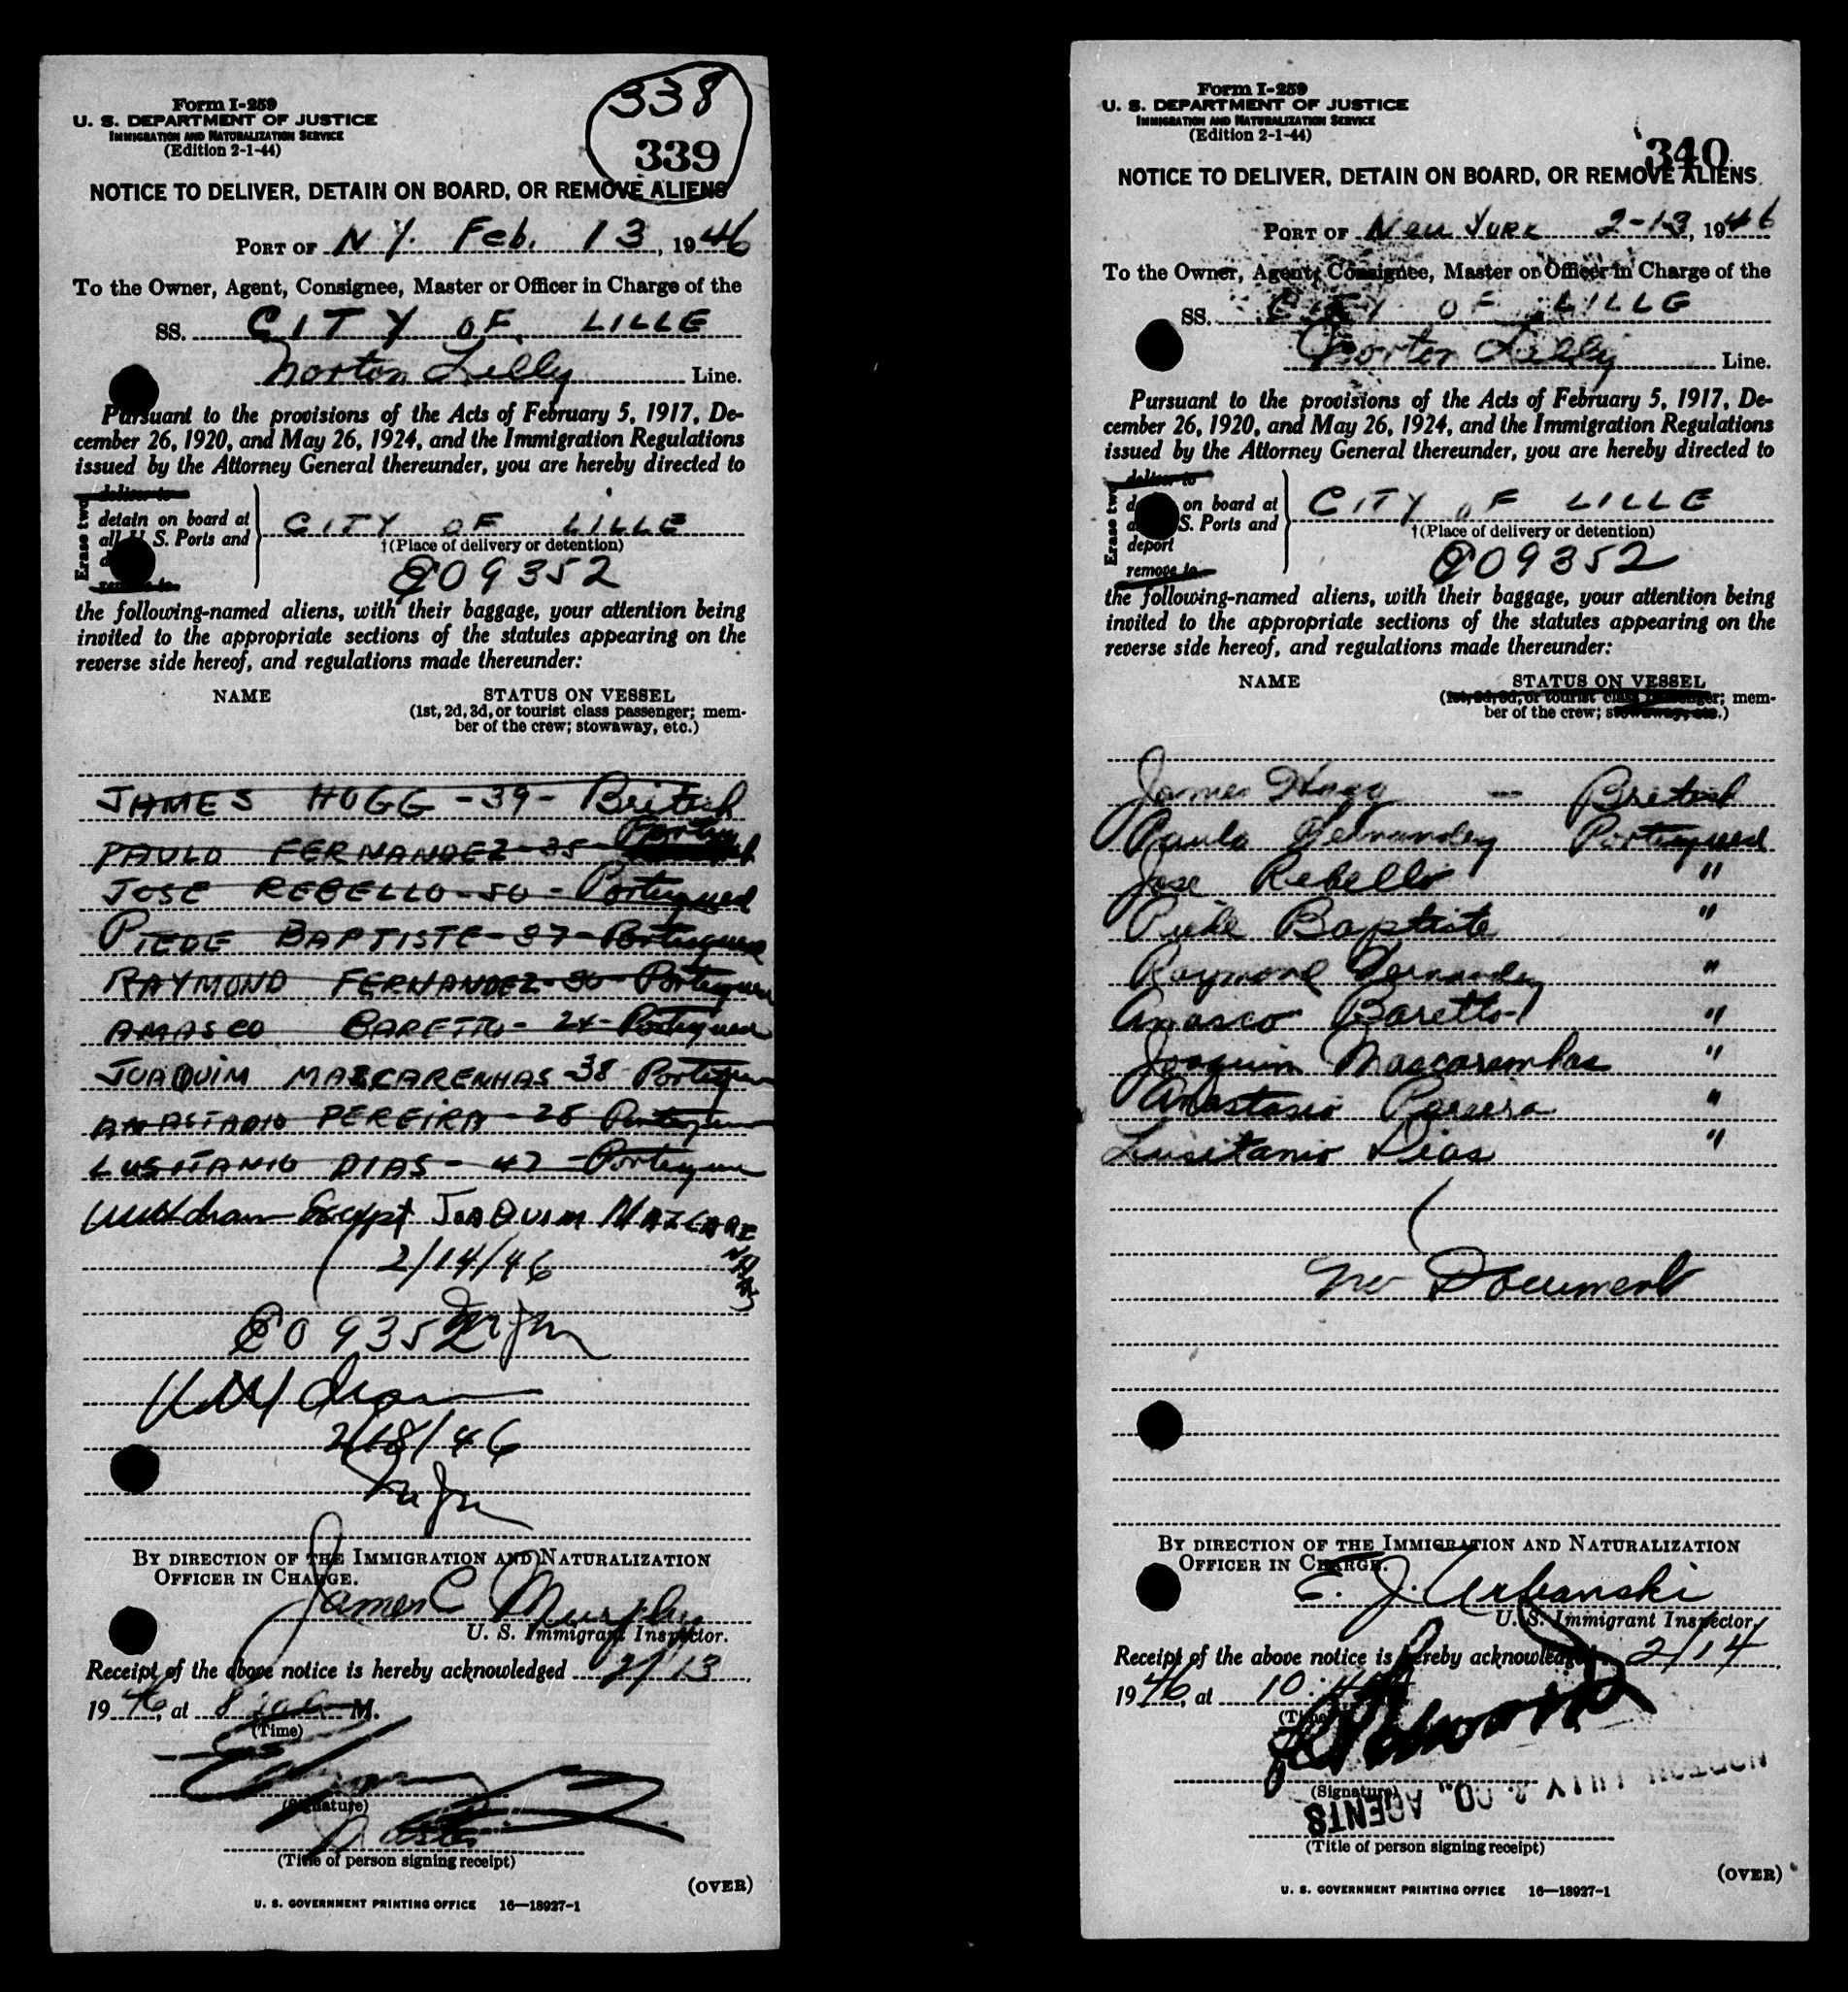 338
339
Form I-259
U. S. DEPARTMENT OF JUSTICE
IMMIGRATION AND NATURALIZATION SERVICE
(Edition 2-1-44)
NOTICE TO DELIVER, DETAIN ON BOARD, OR REMOVE ALIENS
PORT OF N Y. Feb. 13, 1946
To the Owner, Agent, Consignee, Master or Officer in Charge of the
SS. CITY OF LILLE
Norton Lilly Line.
Pursuant to the provisions of the Acts of February 5, 1917, De-
cember 26, 1920, and May 26, 1924, and the Immigration Regulations
issued by the Attorney General thereunder, you are hereby directed to
Erase two
deliver to
detain on board at
all U. S. Ports and
remove to
CITY OF LILLE
†(Place of delivery or detention)
C09352
the following-named aliens, with their baggage, your attention being
invited to the appropriate sections of the statutes appearing on the
reverse side hereof, and regulations made thereunder:
NAME STATUS ON VESSEL
(1st, 2d, 3d, or tourist class passenger; mem-
ber of the crew; stowaway, etc.)
JAMES HOGG - 39 - British
PAULO FERNANDEZ - 35 -
JOSE REBELLO - 50 - Portugued
PIEDE BAPTISTE - 37 - Portuguese
RAYMOND FERNANDEZ - 30 -
AMASCO BARETTO - 24 -
JOAQUIM MASCARENHAS - 38
ANASTADIO PEREIRA - 28
LUSITANIO DIAS - 47 -
Withdrawn Except JOAQUIM MAZCARENHAS
2/14/46
C09352
Withdrawn
2/18/46
BY DIRECTION OF THE IMMIGRATION AND NATURALIZATION
OFFICER IN CHARGE.
James C Murphy
U. S. Immigrant Inspector.
Receipt of the above notice is hereby acknowledged 2/13,
1946, at 8 M.
(Time)
(Signature)
Master
(Title of person signing receipt)
(OVER)
U. S. GOVERNMENT PRINTING OFFICE 16—18927-1
Form I-259
U. S. DEPARTMENT OF JUSTICE
IMMIGRATION AND NATURALIZATION SERVICE
(Edition 2-1-44)
340
NOTICE TO DELIVER, DETAIN ON BOARD, OR REMOVE ALIENS
PORT OF New York 2-13, 1946
To the Owner, Agent, Consignee, Master or Officer in Charge of the
SS. CITY OF LILLE
Norton Lilly Line.
Pursuant to the provisions of the Acts of February 5, 1917, De-
cember 26, 1920, and May 26, 1924, and the Immigration Regulations
issued by the Attorney General thereunder, you are hereby directed to
Erase two
deliver to
on board at
S. Ports and
deport
remove to
CITY OF LILLE
†(Place of delivery or detention)
C09352
the following-named aliens, with their baggage, your attention being
invited to the appropriate sections of the statutes appearing on the
reverse side hereof, and regulations made thereunder:
NAME STATUS ON VESSEL
(1st, 2d, 3d, or tourist class passenger; mem-
ber of the crew; stowaway, etc.)
James Hogg — British
Paulo Fernandez Portugued
Jose Rebello "
Piede Baptiste "
Raymond Fernandez "
Amasco Baretto "
Joaquim Mascarenhas "
Anastasio Pereira "
Lusitanio Dias "
No Documents
BY DIRECTION OF THE IMMIGRATION AND NATURALIZATION
OFFICER IN CHARGE.
E. J. Urbanski
U. S. Immigrant Inspector.
Receipt of the above notice is hereby acknowledged 2/14,
1946, at 10
(Time)
(Signature)
NORTON LILLY & CO., AGENTS
(Title of person signing receipt)
(OVER)
U. S. GOVERNMENT PRINTING OFFICE 16—18927-1